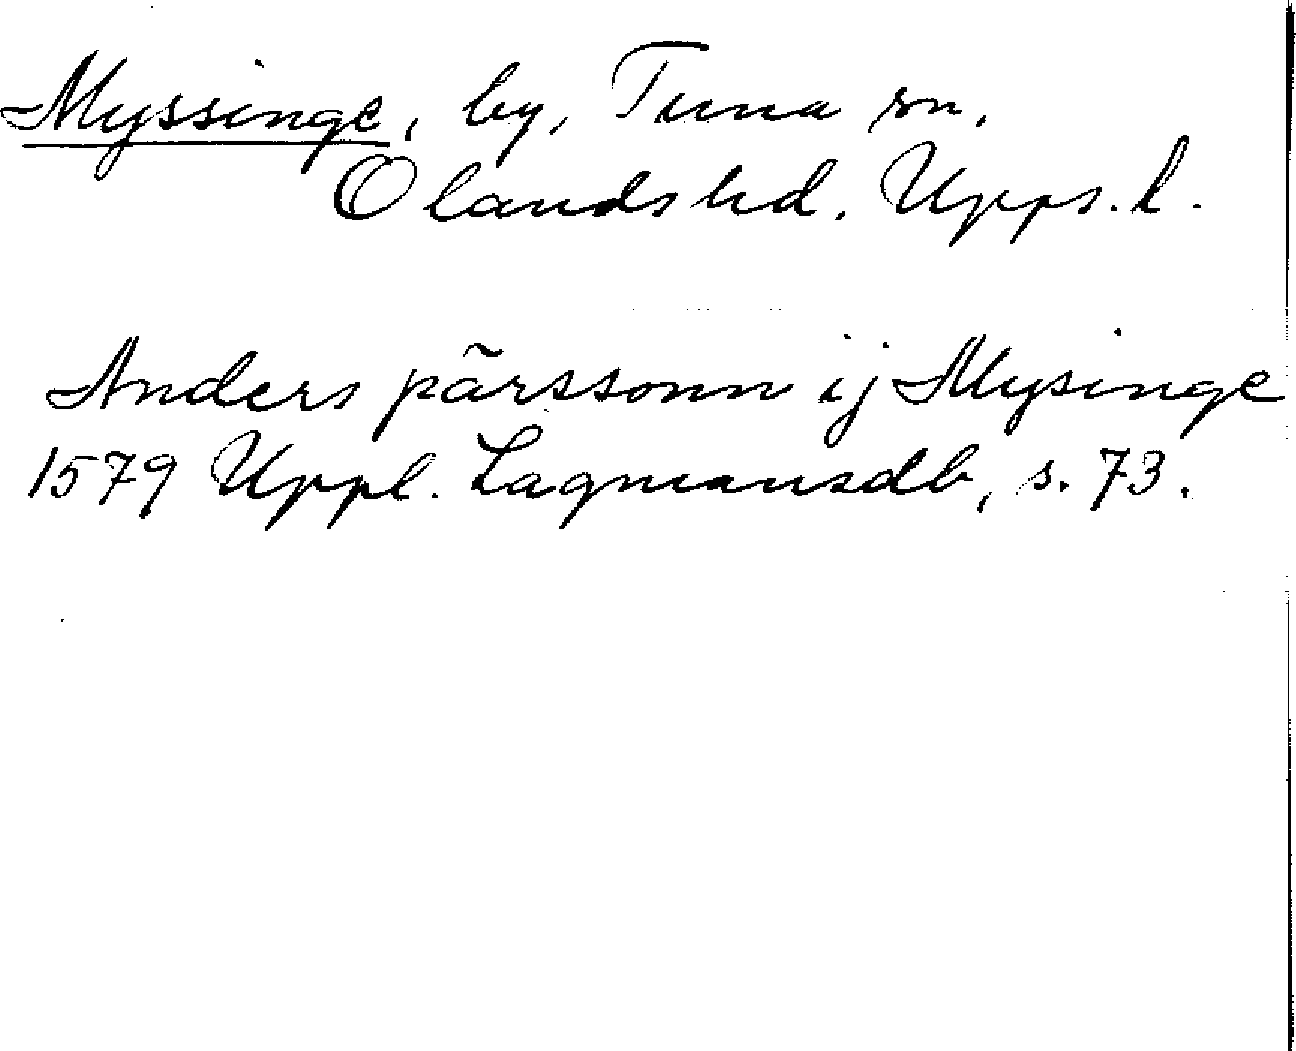 Myssinge, by, Tuna sn,
Olands hd. Upps. l.
Anders pãrssonn ij Mysinge
1579 Uppl. Lagmansdb, s. 73.